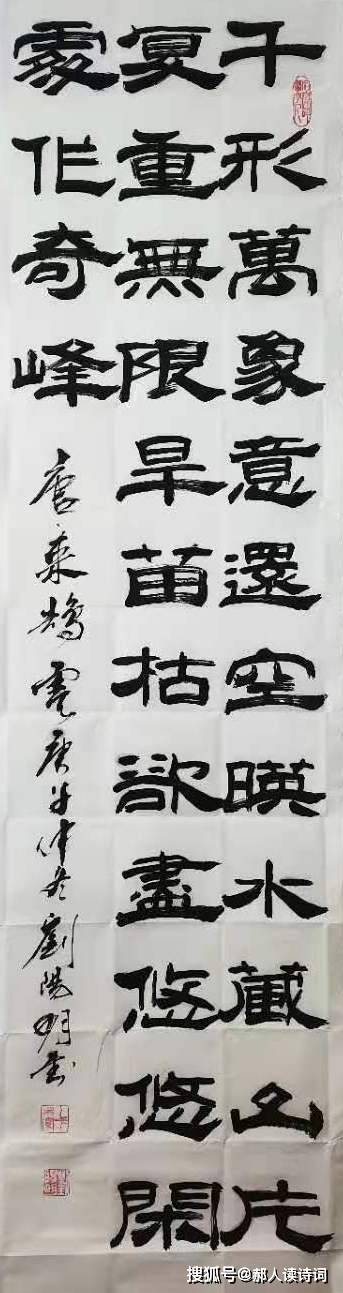 千形萬象意還空暎水藏山片
复重無限旱苗枯欲盡悠悠閑
處作奇峰
唐來鵠雲庚子仲冬劉陽明書
搜狐号@郝人读诗词